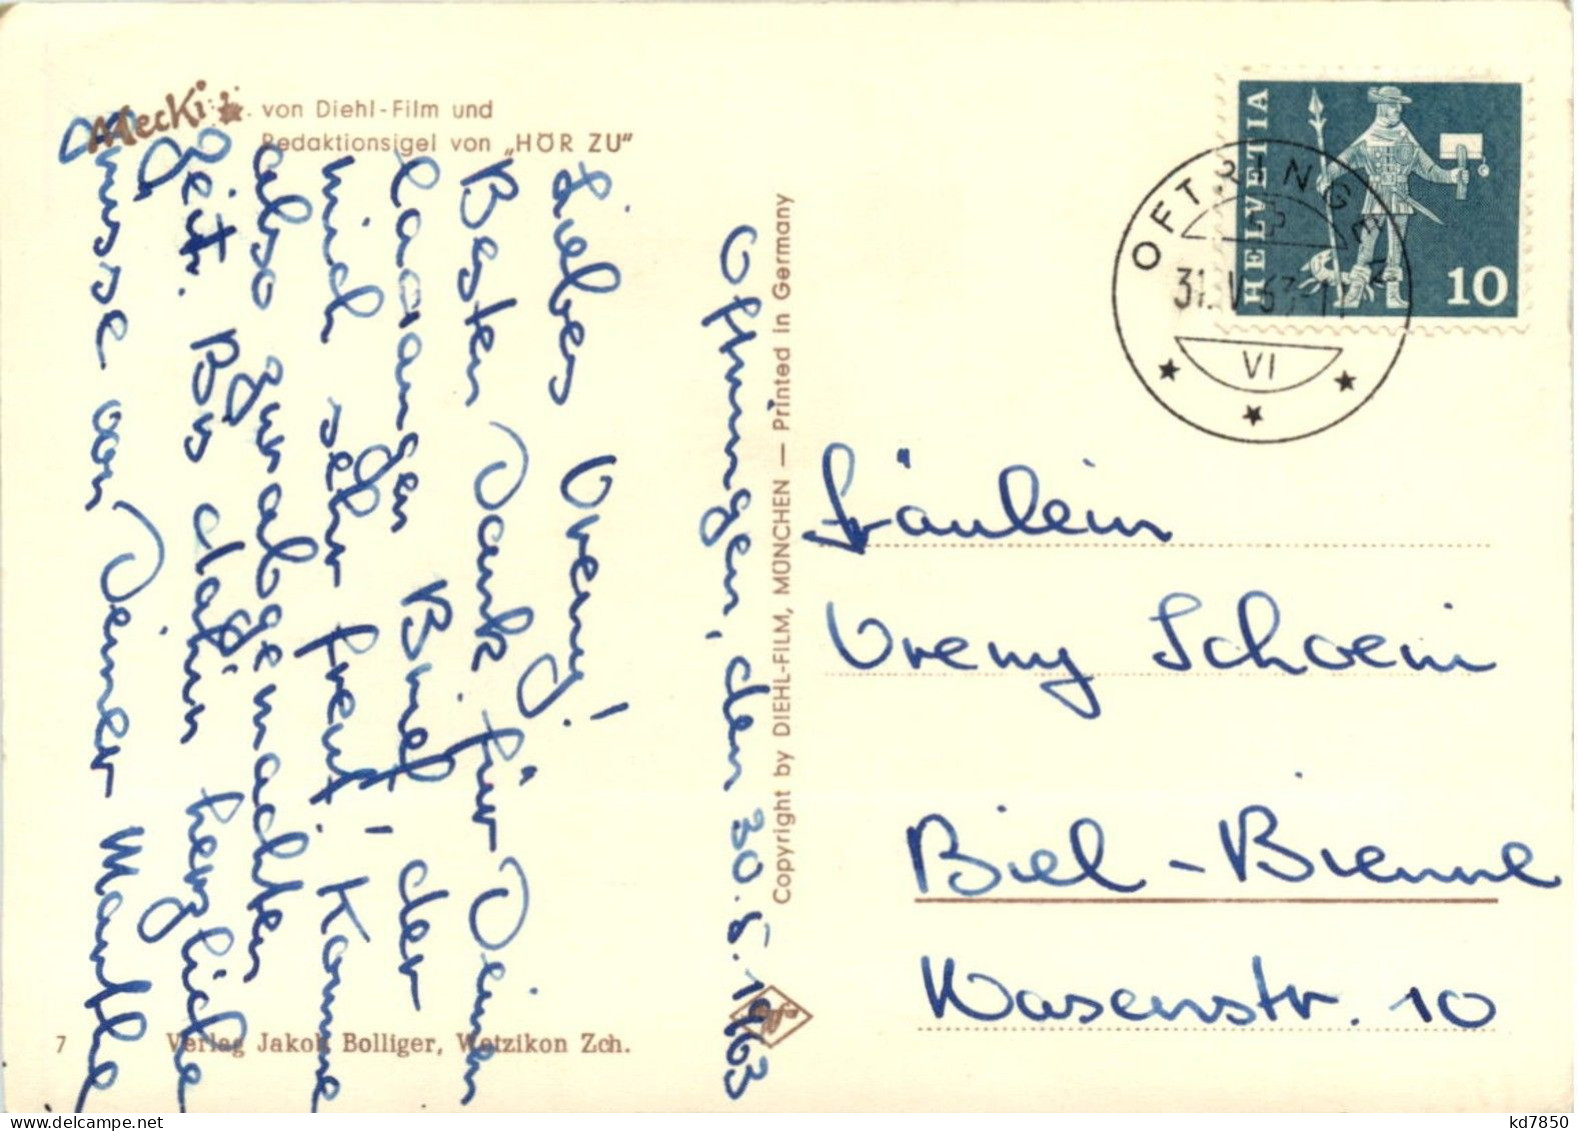 Mecki
von Diehl-Film und
Redaktionsigel von „HÖR ZU"
Oftringen, den 30.5.1963
Liebes Vreny!
Besten Dank für Deinen
laaangen Brief, der
mich sehr freut. Komme
also zur abgemachten
Zeit. Bis dahin herzliche
Grüsse von Deiner Marthe
7
Verlag Jakob Bolliger, Wetzikon Zch.
Copyright by DIEHL-FILM, MÜNCHEN — Printed in Germany
HELVETIA
10
OFTRINGEN
31.V.63
VI
Fräulein
Vreny Schoeni
Biel-Bienne
Wasenstr. 10
www.delcampe.net
kd7850